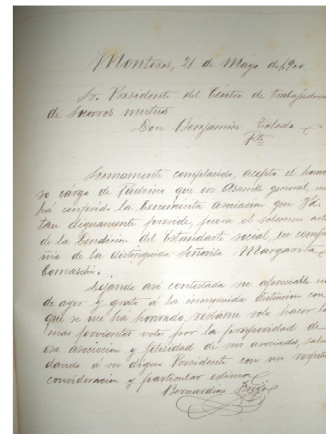 Montoro, 21 de Mayo de 190
Sr. Presidente del Centro de trabajadores
de Socorros mutuos
Don Benjamin Toledo
Pte
Sumamente complacido, acepto el honro
so cargo de Padrino que en Asamb general me
ha conferido la benemérita asociacion que Vd.
tan dignamente preside, para el solemne acto
de la bendicion del Estandarte social, en compa
ñia de la distinguida Señorita Margarita
Comaschi.
Dejando asi contestada su apreciable no
de ayer y grato á la inmerecida distincion con
que se me ha honrado, réstame solo hacer lo
mas fervientes votos por la prosperidad de
esa asociacion y felicidad de sus asociados, salu
dando á su digno Presidente con mi respetu
consideracion y particular estima
Bernardino